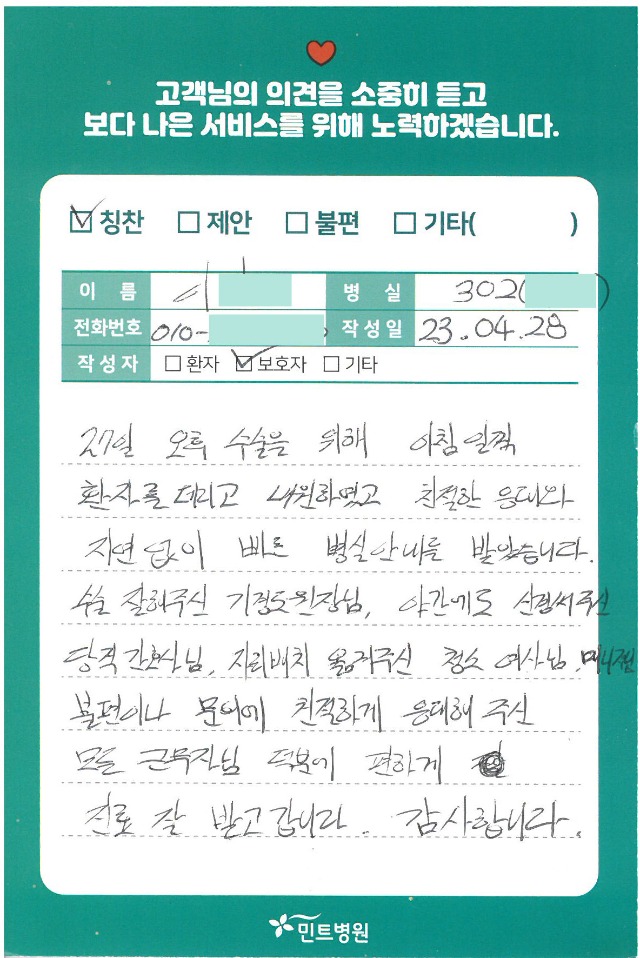 고객님의 의견을 소중히 듣고
보다 나은 서비스를 위해 노력하겠습니다.
칭찬 제안 불편 기타( )
이 름 병 실 302(
전화번호 010- 작성일 23.04.28
작성자 환자 보호자 기타
27일 오후 수술을 위해 아침 일찍
환자를 데리고 내원하였고 친절한 응대와
지연 없이 빠른 병실안내를 받았습니다.
수술 잘해주신 기정도원장님, 야간에도 신경써주신
당직간호사님, 자리배치 옮겨주신 청소 여사님, 매니저님
불편이나 문의에 친절하게 응대해 주신
모든 근무자님 덕분에 편하게
진료 잘 받고 갑니다. 감사합니다.
민트병원